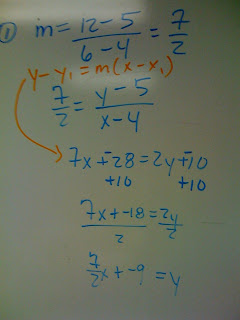 ① m = 12-5/6-4 = 7/2
y-y₁ = m(x-x₁)
7/2 = y-5/x-4
7x+-28 = 2y+-10
+10 +10
7x+-18 = 2y
2 2
7/2x+-9 = y